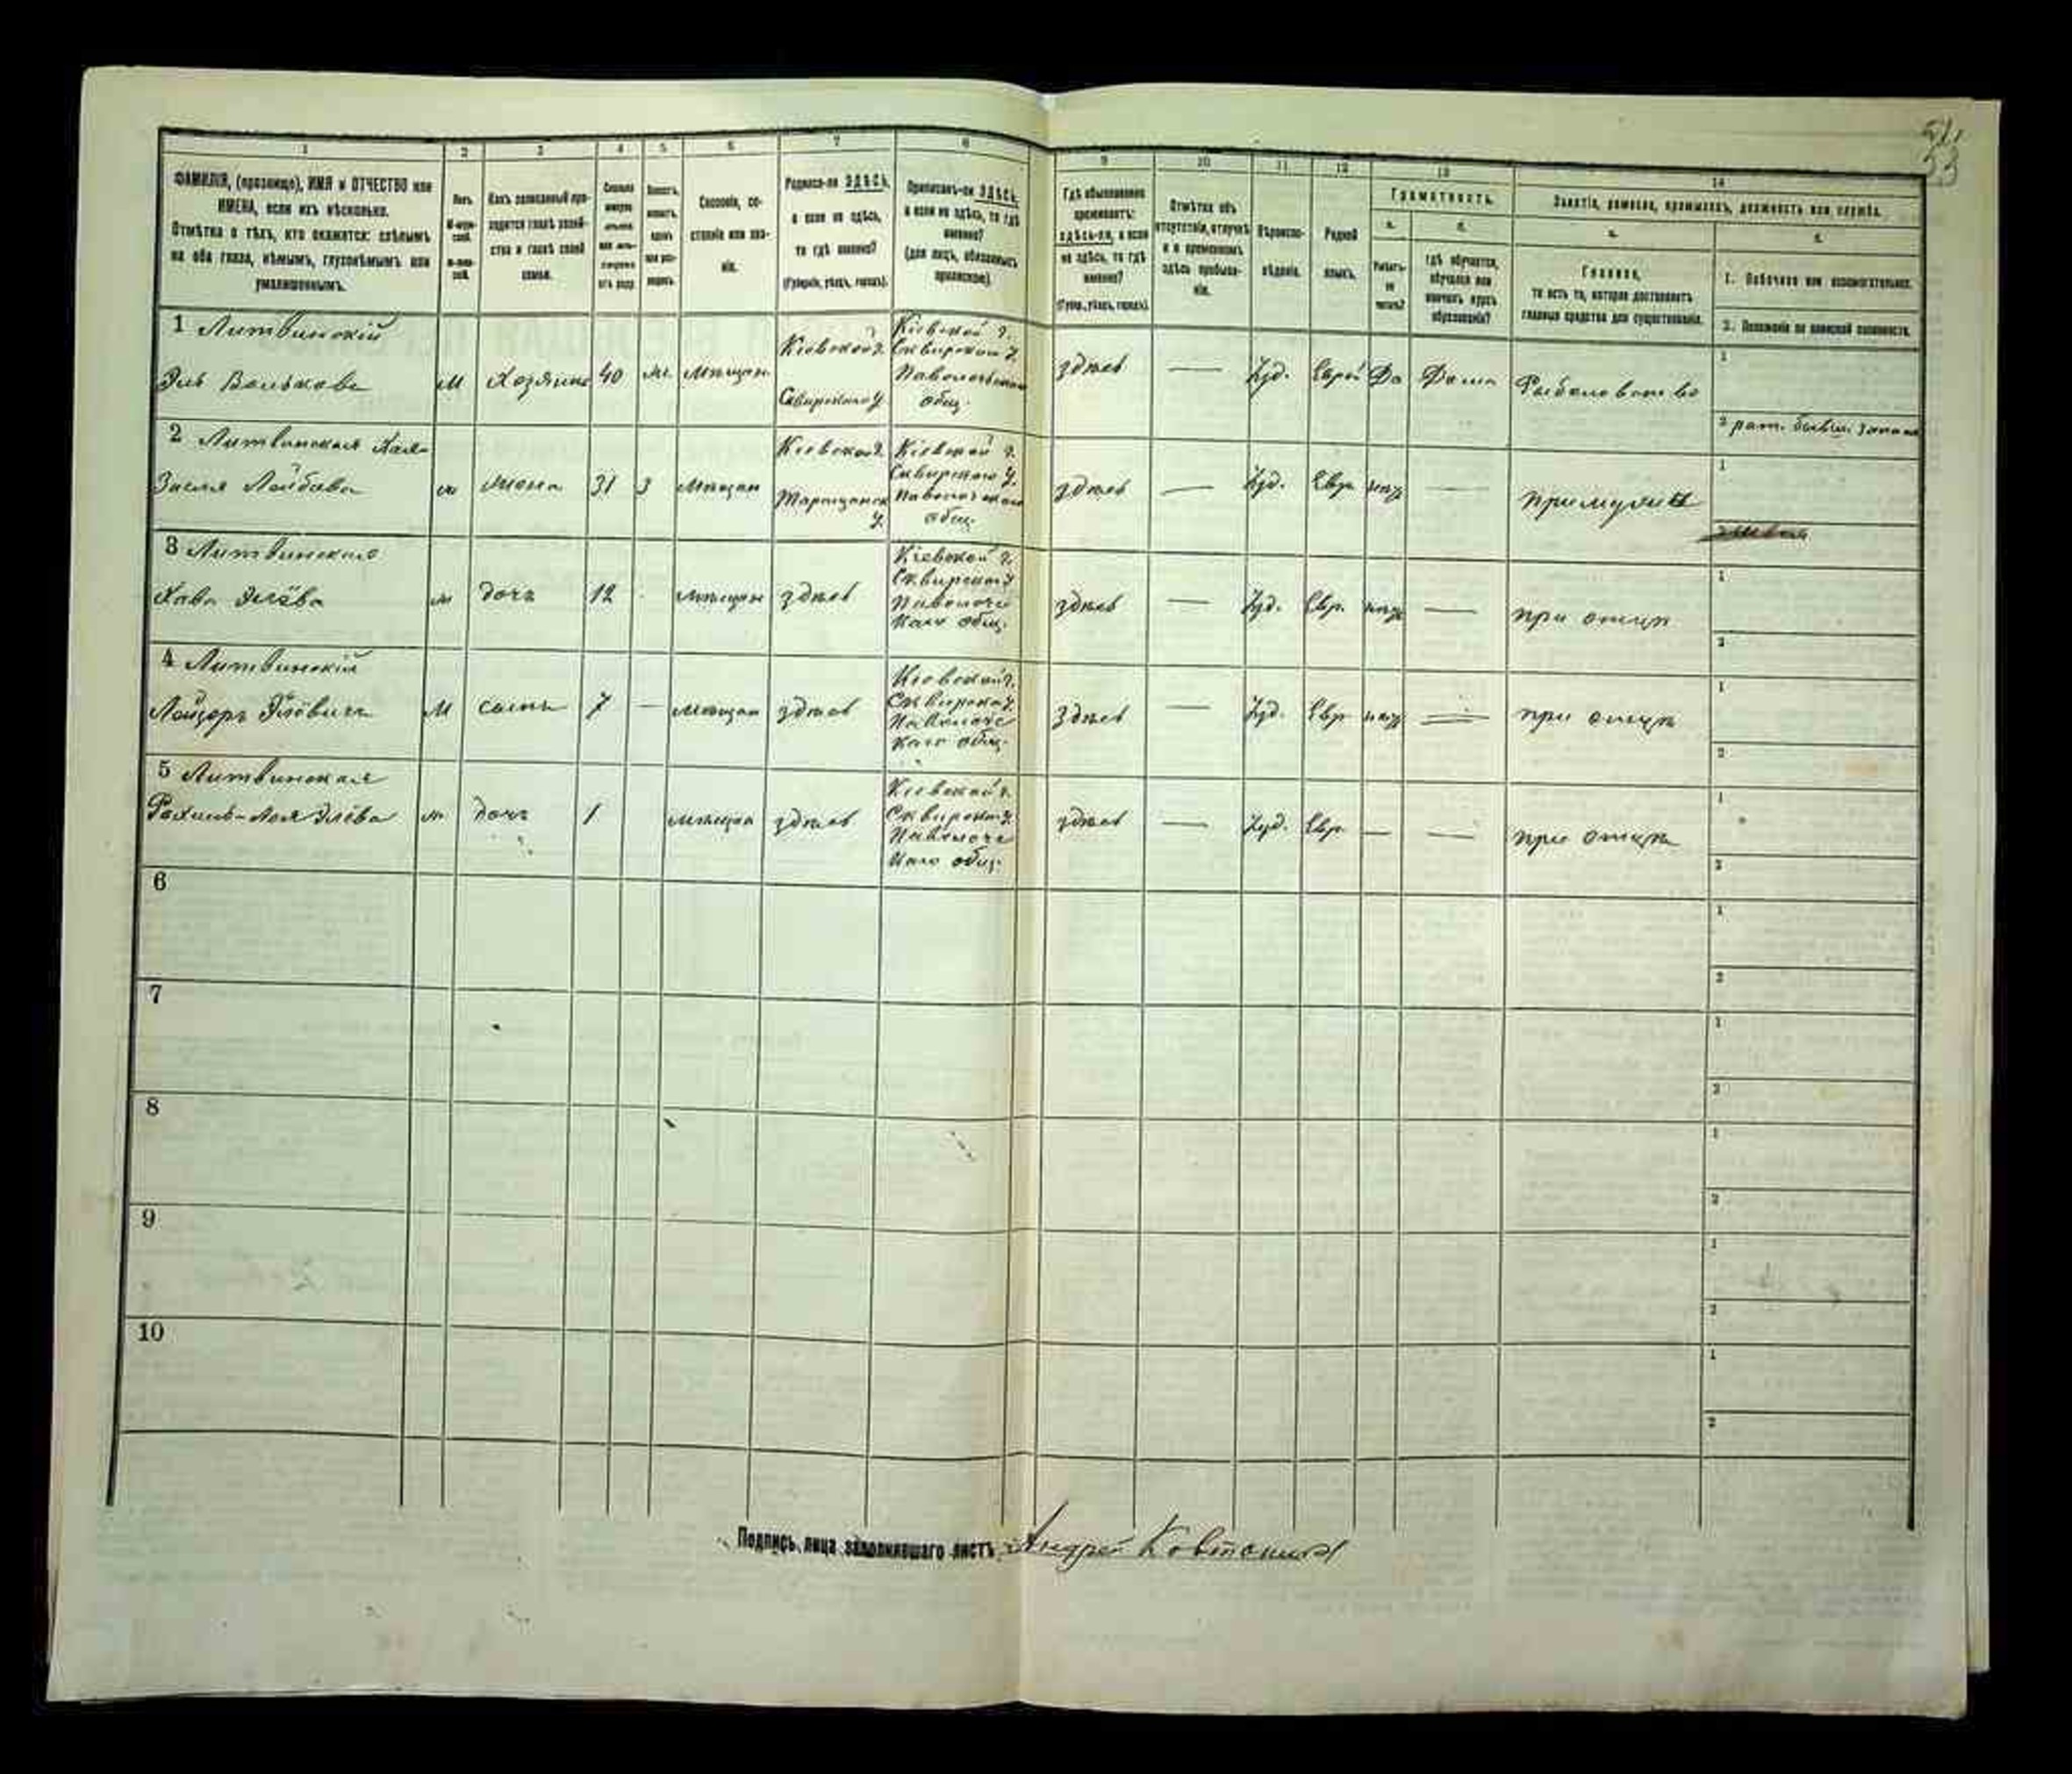 51.
53
1 2 3 4 5 6 7 8 9 10 11 12 13 14
ФАМИЛІЯ, (прозвище), ИМЯ и ОТЧЕСТВО или
ИМЕНА, если ихъ нѣсколько.
Отмѣтка о тѣхъ, кто окажется: слѣпымъ
на оба глаза, нѣмымъ, глухонѣмымъ или
умалишеннымъ.
Полъ.
Какъ записанный при-
ходится главѣ хозяй-
ства и главѣ своей
семьи.
Сословіе, со-
стояніе или зва-
ніе.
Родился-ли ЗДѢСЬ,
а если не здѣсь,
то гдѣ именно?
(Губернія, уѣздъ, городъ).
Приписанъ-ли ЗДѢСЬ,
а если не здѣсь, то гдѣ
именно?
(для лицъ, обязанныхъ
припискою).
Гдѣ обыкновенно
проживаетъ:
здѣсь-ли, а если
не здѣсь, то гдѣ
именно?
(Губ., уѣздъ, городъ).
Отмѣтка объ
отсутствіи, отлучкѣ
и о временномъ
здѣсь пребыва-
ніи.
Вѣроиспо-
вѣданіе.
Родной
языкъ.
Грамотность.
а. б.
Умѣетъ-
ли
читать?
гдѣ обучается,
обучался или
кончилъ курсъ
образованія?
Занятіе, ремесло, промыселъ, должность или служба.
а. б.
Главное,
то есть то, которое доставляетъ
главныя средства для существованія.
1. Побочное или вспомогательное.
2. Положеніе по воинской повинности.
1 Литвинскій
Эль Вольковъ
М Хозяинъ 40 ж. мѣщан
Кіевской г.
Сквирскаго у.
Кіевской г.
Сквирскаго у.
Паволочьскаго
общ.
здѣсь — Іуд. Еврей Да Дома Рыболовство
1
2 рат.
2 Литвинская Хая-
Лейбова
ж жена 31 З мѣщан
Кіевской г.
Таращанск
у.
Кіевской г.
Сквирскаго у.
Паволочскаго
общ.
здѣсь — Іуд. Евр. нѣт — при мужѣ
1
3 Литвинская
Хава Элёва
ж дочь 12 мѣщан здѣсь
Кіевской г.
Сквирскаго у.
Паволочс
каго общ.
здѣсь — Іуд. Евр. нѣт — при отцѣ
1
2
4 Литвинскій
Лейзоръ Элёвичъ
М сынъ 7 — мѣщан здѣсь
Кіевской г.
Сквирска у.
Паволочс
каго общ.
здѣсь — Іуд. Евр нѣт — при отцѣ
1
2
5 Литвинская
Рахиль-Лея Элёва
ж дочь 1 мѣщан здѣсь
Кіевской г.
Сквирска у.
Паволочс
каго общ.
здѣсь — Іуд. Евр. — — при отцѣ
1
2
6
1
2
7
1
2
8
1
2
9
1
2
10
1
2
Подпись лица заполнившаго листъ Андрей